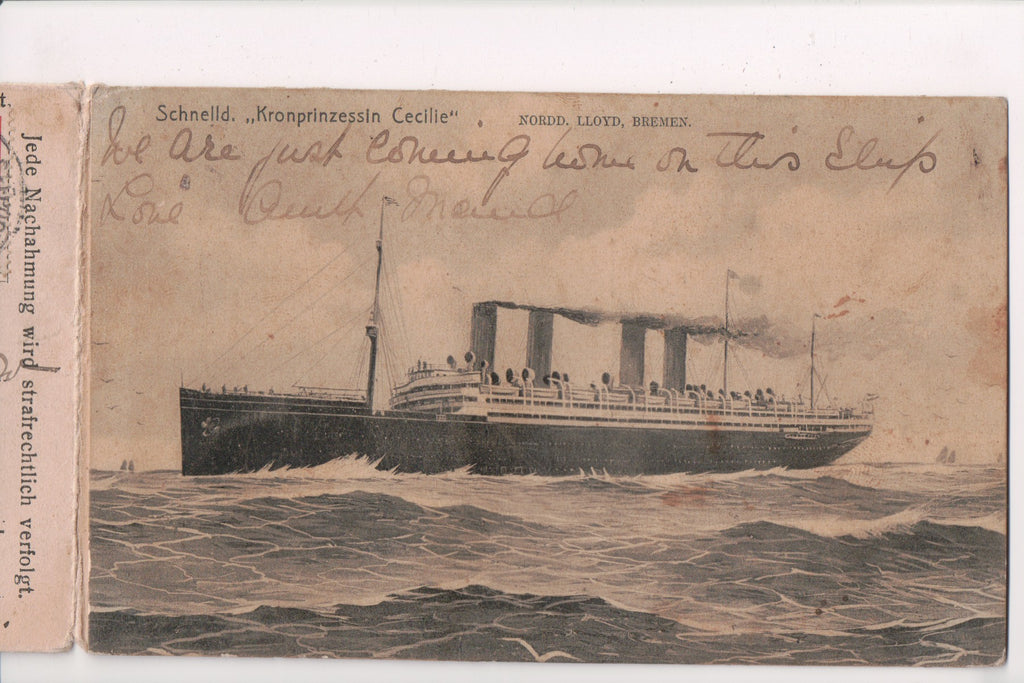 Schnelld. „Kronprinzessin Cecilie"
NORDD. LLOYD, BREMEN.
We are just coming home on this Ship
Love Aunt Maud
Jede Nachahmung wird strafrechtlich verfolgt.